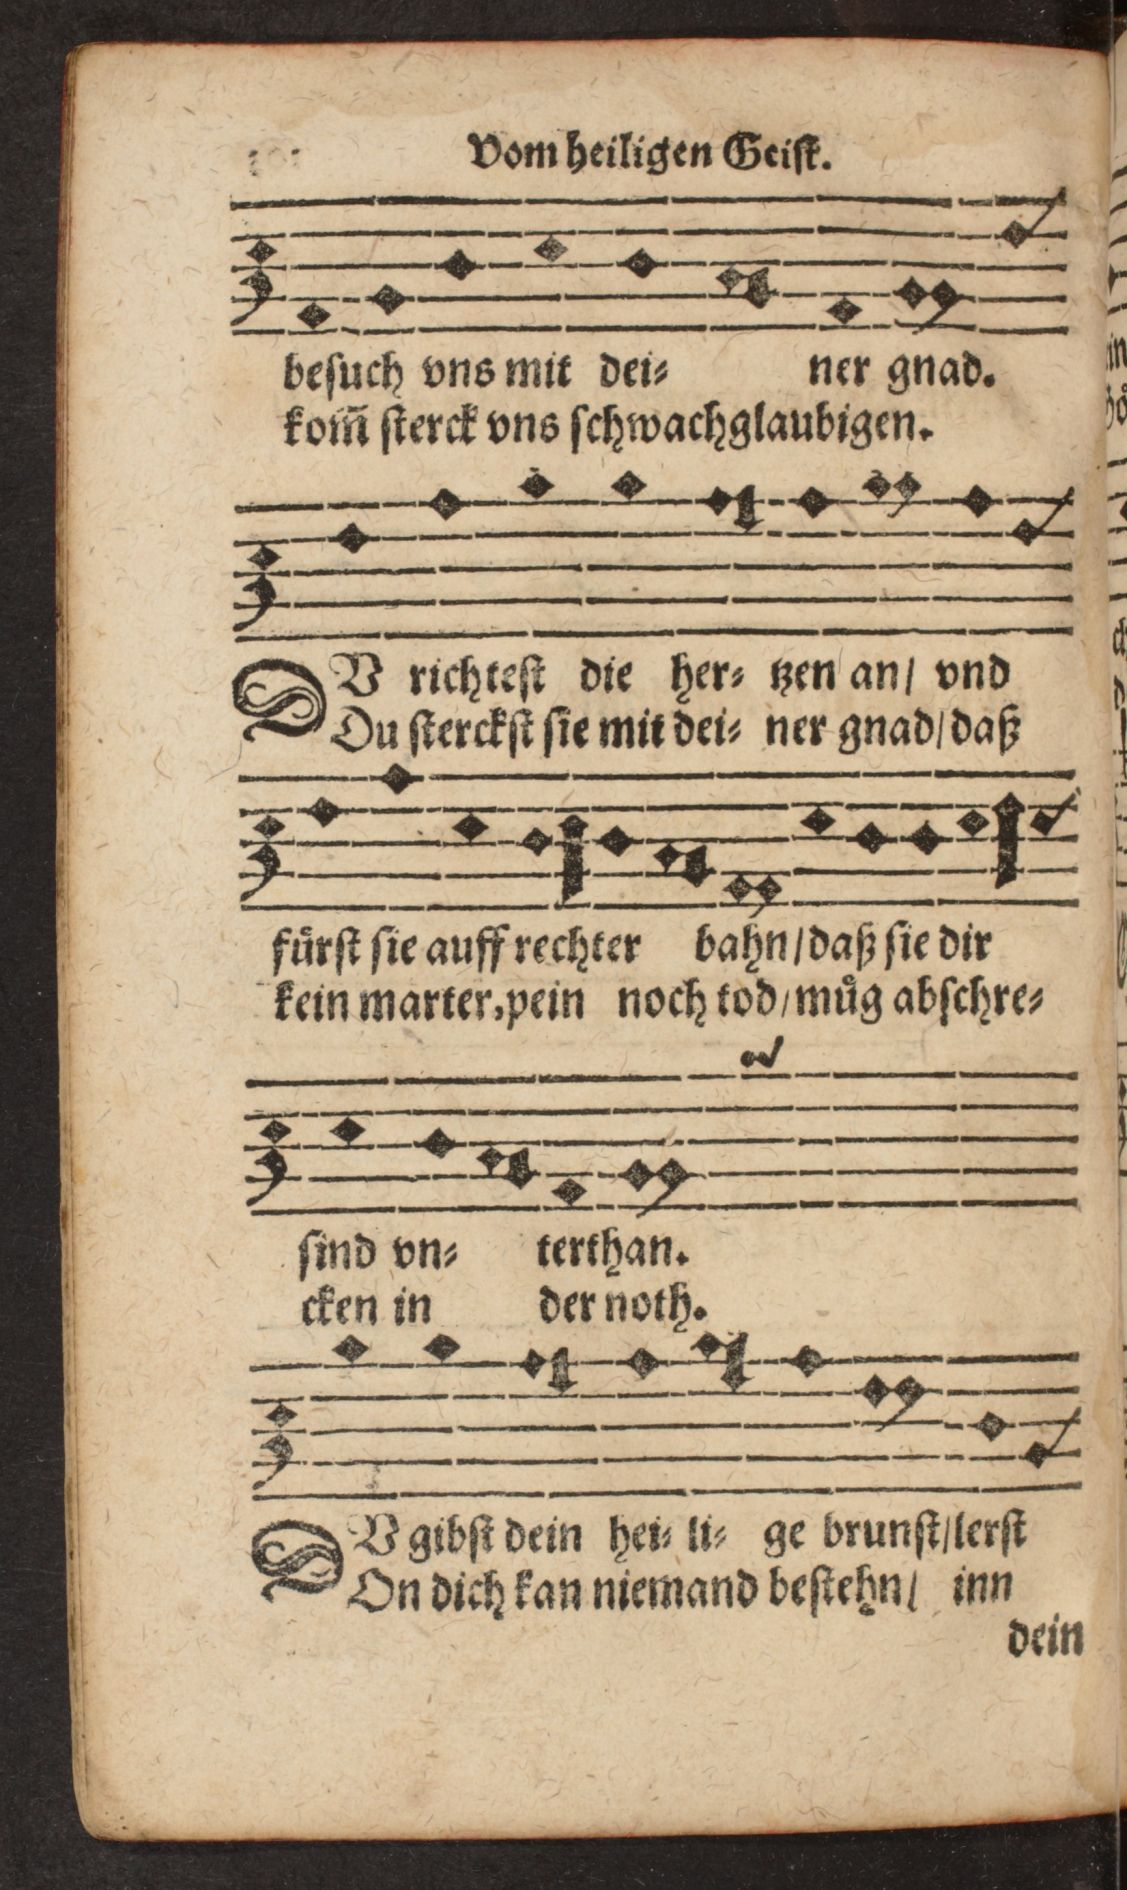 Vom heiligen Geist.
besuch vns mit dei⸗ ner gnad.
kom̃ sterck vns schwachglaubigen.
DV richtest die her⸗ tzen an/ vnd
Du sterckst sie mit dei⸗ ner gnad/ daß
fuͤrst sie auff rechter bahn/ daß sie dir
kein marter, pein noch tod/ muͤg abschre⸗
sind vn⸗ terthan.
cken in der noth.
DV gibst dein hei⸗ li⸗ ge brunst/ lerst
On dich kan niemand bestehn/ inn
dein